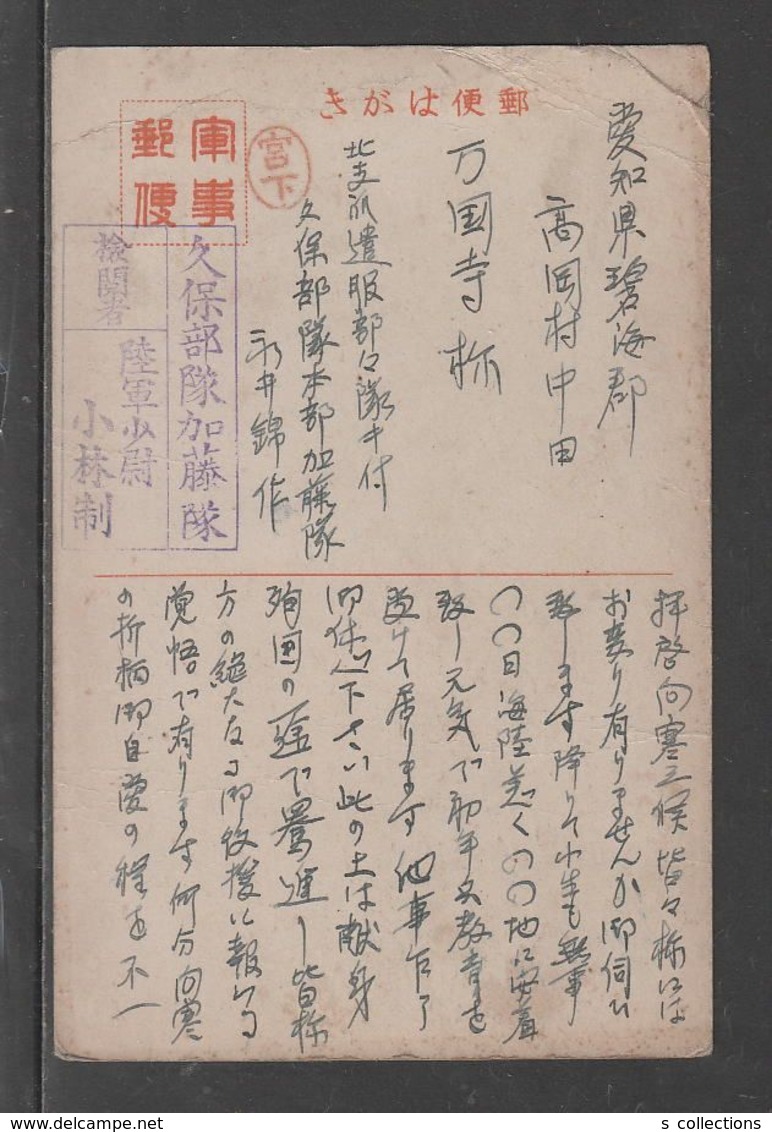 郵便はがき
軍事
郵便
宮下
愛知県碧海郡
高岡村中田
万国寺 様
北支派遣服部々隊牛付
久保部隊本部加藤隊
永井錦作
久保部隊加藤隊
検閲者
陸軍少尉
小林制
拝啓向寒之候皆々様には
お変り有りませんか御伺ひ
致します降りて小生も無事
〇〇日海陸恙く〇〇地に安着
致し元気で初年兵教育を
受けて居ります他事乍ら
御休心下さい此の上は献身
殉国の一途で驀進し皆様
方の絶大なる御後援に報いる
覚悟で有ります何分向寒
の折柄御自愛の程を 不一
s collections